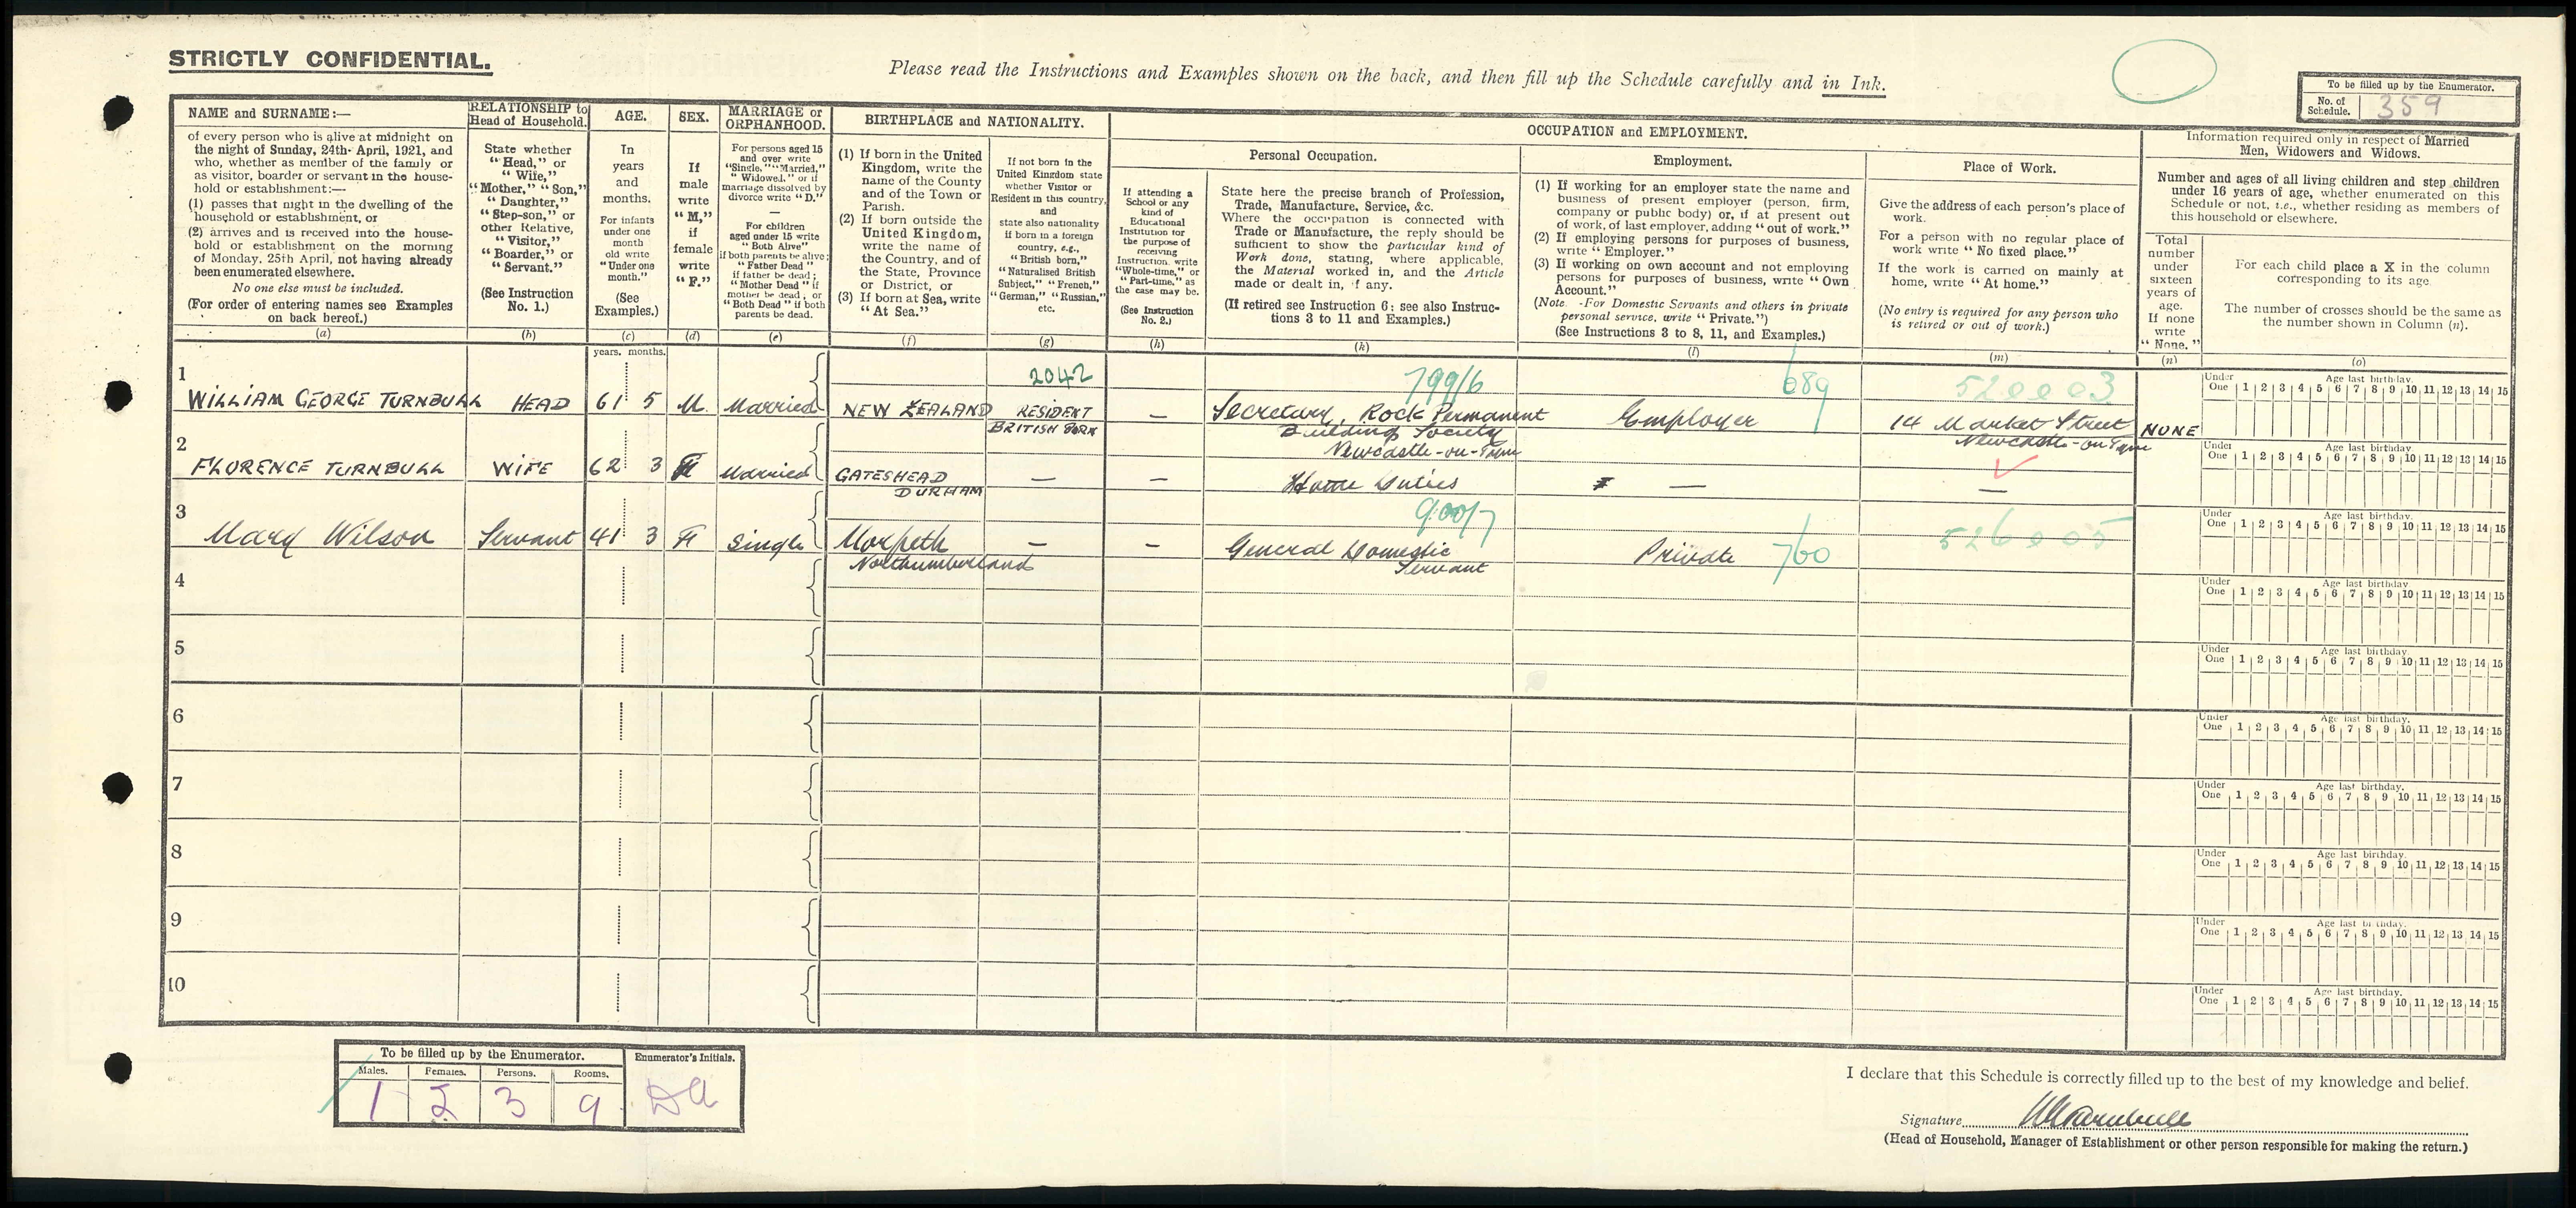 STRICTLY CONFIDENTIAL.
Please read the Instructions and Examples shown on the back, and then fill up the Schedule carefully and in Ink.
To be filled up by the Enumerator.
No. of Schedule. 359
NAME and SURNAME:—
of every person who is alive at midnight on
the night of Sunday, 24th April, 1921, and
who, whether as member of the family or
as visitor, boarder or servant in the house-
hold or establishment:—
(1) passes that night in the dwelling of the
household or establishment, or
(2) arrives and is received into the house-
hold or establishment on the morning
of Monday, 25th April, not having already
been enumerated elsewhere.
No one else must be included.
(For order of entering names see Examples
on back hereof.)
(a)
RELATIONSHIP to
Head of Household.
State whether
"Head," or
"Wife,"
"Mother," "Son,"
"Daughter,"
"Step-son," or
other Relative,
"Visitor,"
"Boarder," or
"Servant."
(See Instruction
No. 1.)
(b)
AGE.
In
years
and
months.
For infants
under one
month
old write
"Under one
month."
(See
Examples.)
(c)
SEX.
If
male
write
"M,"
if
female
write
"F."
(d)
MARRIAGE or
ORPHANHOOD.
For persons aged 15
and over write
"Single," "Married,"
"Widowed," or if
marriage dissolved by
divorce write "D."
—
For children
aged under 15 write
"Both Alive"
if both parents be alive;
"Father Dead"
if father be dead;
"Mother Dead" if
mother be dead, or
"Both Dead" if both
parents be dead.
(e)
BIRTHPLACE and NATIONALITY.
(1) If born in the United
Kingdom, write the
name of the County
and of the Town or
Parish.
(2) If born outside the
United Kingdom,
write the name of
the Country, and of
the State, Province
or District, or
(3) If born at Sea, write
"At Sea."
(f)
If not born in the
United Kingdom state
whether Visitor or
Resident in this country,
and
state also nationality
if born in a foreign
country, e.g.,
"British born,"
"Naturalised British
Subject," "French,"
"German," "Russian,"
etc.
(g)
OCCUPATION and EMPLOYMENT.
Personal Occupation.
If attending a
School or any
kind of
Educational
Institution for
the purpose of
receiving
Instruction, write
"Whole-time," or
"Part-time," as
the case may be.
(See Instruction
No. 2.)
(h)
State here the precise branch of Profession,
Trade, Manufacture, Service, &c.
Where the occupation is connected with
Trade or Manufacture, the reply should be
sufficient to show the particular kind of
Work done, stating, where applicable,
the Material worked in, and the Article
made or dealt in, if any.
(If retired see Instruction 6; see also Instruc-
tions 3 to 11 and Examples.)
(k)
Employment.
(1) If working for an employer state the name and
business of present employer (person, firm,
company or public body) or, if at present out
of work, of last employer, adding "out of work."
(2) If employing persons for purposes of business,
write "Employer."
(3) If working on own account and not employing
persons for purposes of business, write "Own
Account."
(Note.—For Domestic Servants and others in private
personal service, write "Private.")
(See Instructions 3 to 8, 11, and Examples.)
(l)
Place of Work.
Give the address of each person's place of
work.
For a person with no regular place of
work write "No fixed place."
If the work is carried on mainly at
home, write "At home."
(No entry is required for any person who
is retired or out of work.)
(m)
Information required only in respect of Married
Men, Widowers and Widows.
Number and ages of all living children and step children
under 16 years of age, whether enumerated on this
Schedule or not, i.e., whether residing as members of
this household or elsewhere.
Total
number
under
sixteen
years of
age.
If none
write
"None."
(n)
For each child place a X in the column
corresponding to its age
The number of crosses should be the same as
the number shown in Column (n).
(o)
years. months.
2042 799/6 689 520003
1 WILLIAM GEORGE TURNBULL HEAD 61 5 M. Married NEW ZEALAND RESIDENT — Secretary, Rock Permanent Employer 14 Market Street NONE
BRITISH BORN Building Society Newcastle-on-Tyne
Newcastle-on-Tyne
Under One 1 2 3 4 5 6 7 8 9 10 11 12 13 14 15
Age last birthday.
2 FLORENCE TURNBULL WIFE 62 3 F Married GATESHEAD — — Home Duties — —
DURHAM
Under One 1 2 3 4 5 6 7 8 9 10 11 12 13 14 15
Age last birthday.
900/7 760 526005
3 Mary Wilson Servant 41 3 F Single Morpeth — — General Domestic Private
Northumberland Servant
Under One 1 2 3 4 5 6 7 8 9 10 11 12 13 14 15
Age last birthday.
4
Under One 1 2 3 4 5 6 7 8 9 10 11 12 13 14 15
Age last birthday.
5
Under One 1 2 3 4 5 6 7 8 9 10 11 12 13 14 15
Age last birthday.
6
Under One 1 2 3 4 5 6 7 8 9 10 11 12 13 14 15
Age last birthday.
7
Under One 1 2 3 4 5 6 7 8 9 10 11 12 13 14 15
Age last birthday.
8
Under One 1 2 3 4 5 6 7 8 9 10 11 12 13 14 15
Age last birthday.
9
Under One 1 2 3 4 5 6 7 8 9 10 11 12 13 14 15
Age last birthday.
10
Under One 1 2 3 4 5 6 7 8 9 10 11 12 13 14 15
Age last birthday.
To be filled up by the Enumerator.
Males. Females. Persons. Rooms.
1 2 3 9
Enumerator's Initials.
DA
I declare that this Schedule is correctly filled up to the best of my knowledge and belief.
Signature WGTurnbull
(Head of Household, Manager of Establishment or other person responsible for making the return.)